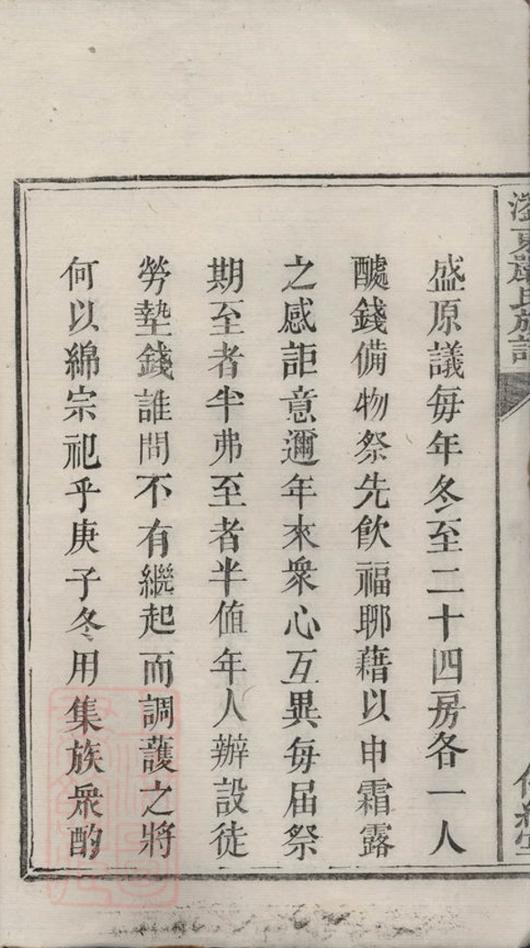 盛原議每年冬至二十四房各一人
醵錢備物祭先飲福聊藉以申霜露
之感詎意邇年來衆心互異每届祭
期至者半弗至者半值年人辦設徒
勞墊錢誰問不有繼起而調護之將
何以綿宗祀乎庚子冬用集族衆酌